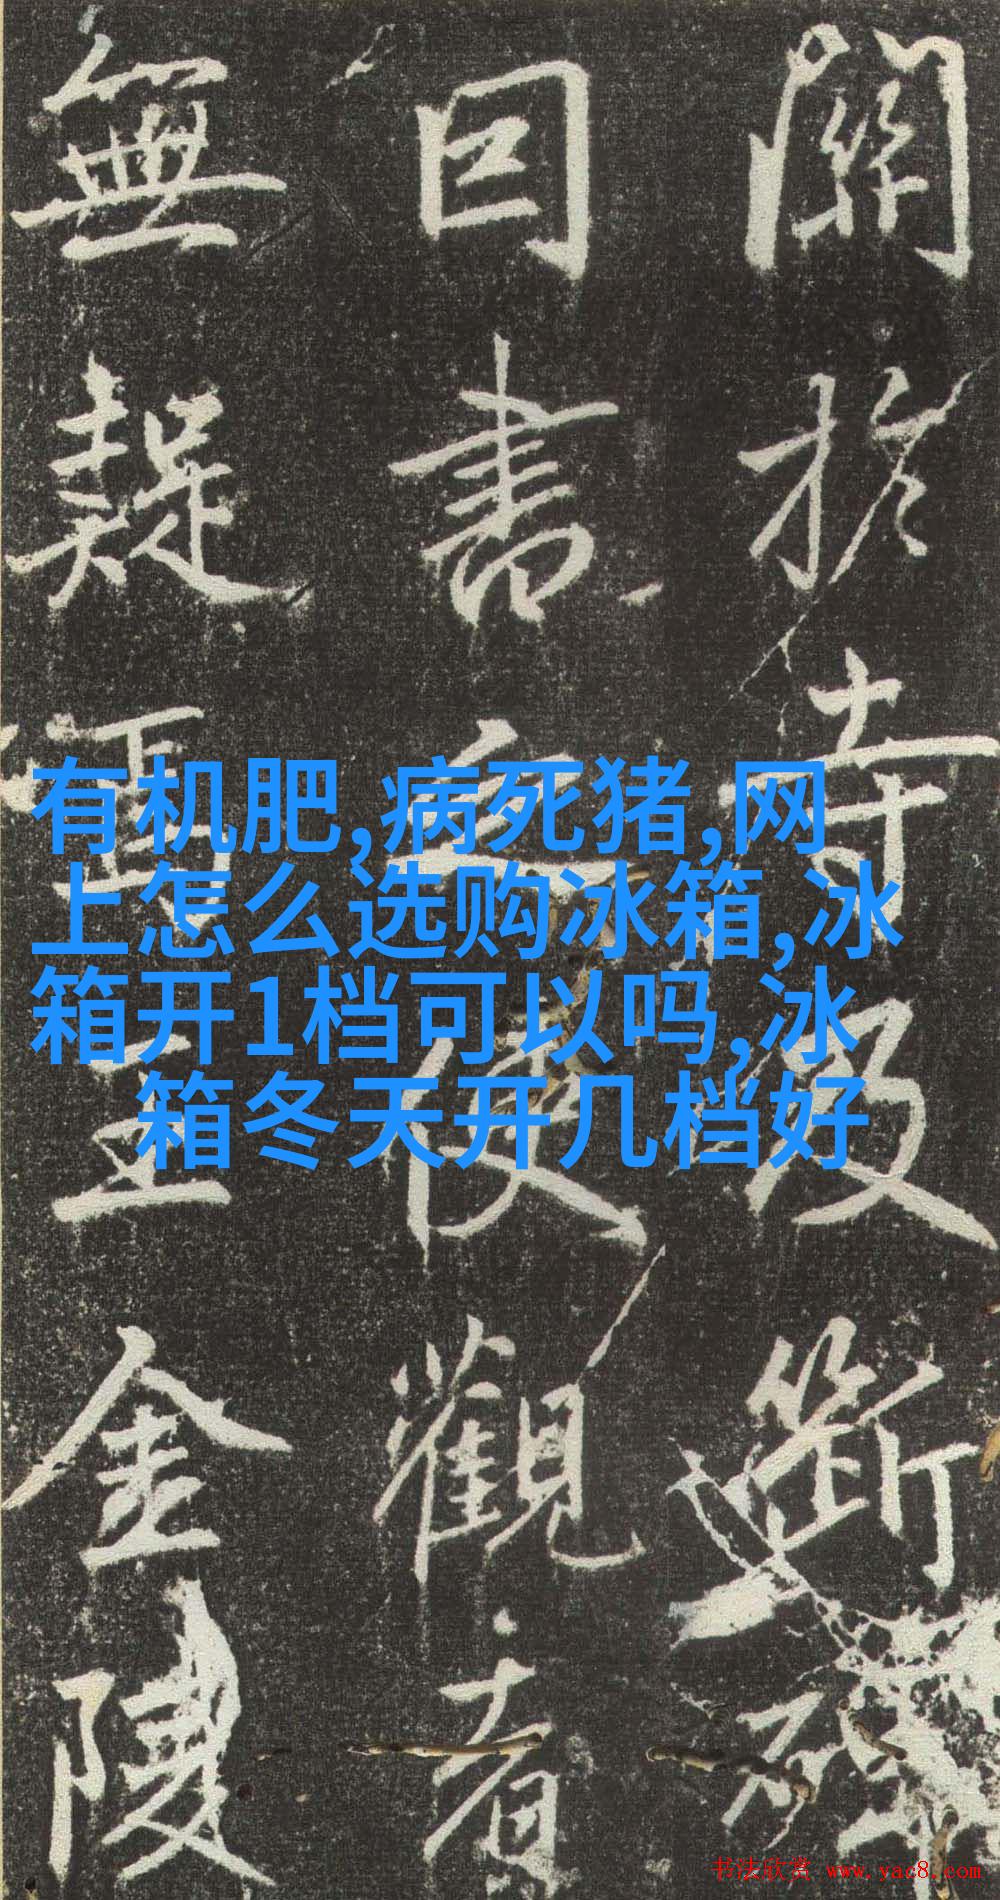 關於寺斷
曰書使觀者
無疑王金陵
有机肥,病死猪,网
上怎么选购冰箱,冰
箱开1档可以吗,冰
箱冬天开几档好
书法欣赏 www.yac8.com